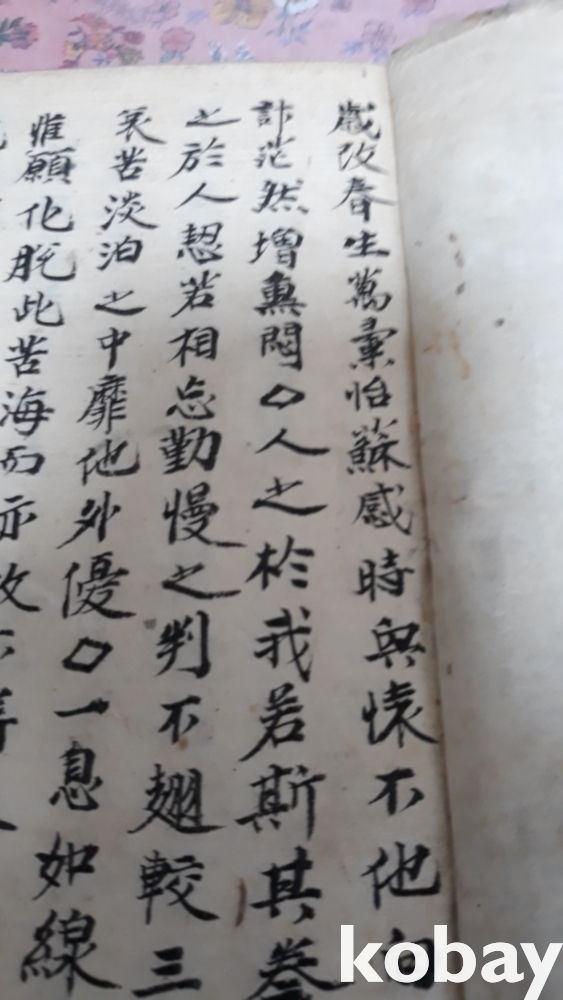 歲改春生萬彙怡蘇感時興懷不他向
訃茫然增熏悶◇人之於我若斯其眷
之於人恝若相忘勤慢之判不翅較三
衰苦淡泊之中靡他外優◇一息如線
惟願化脫此苦海而亦
kobay